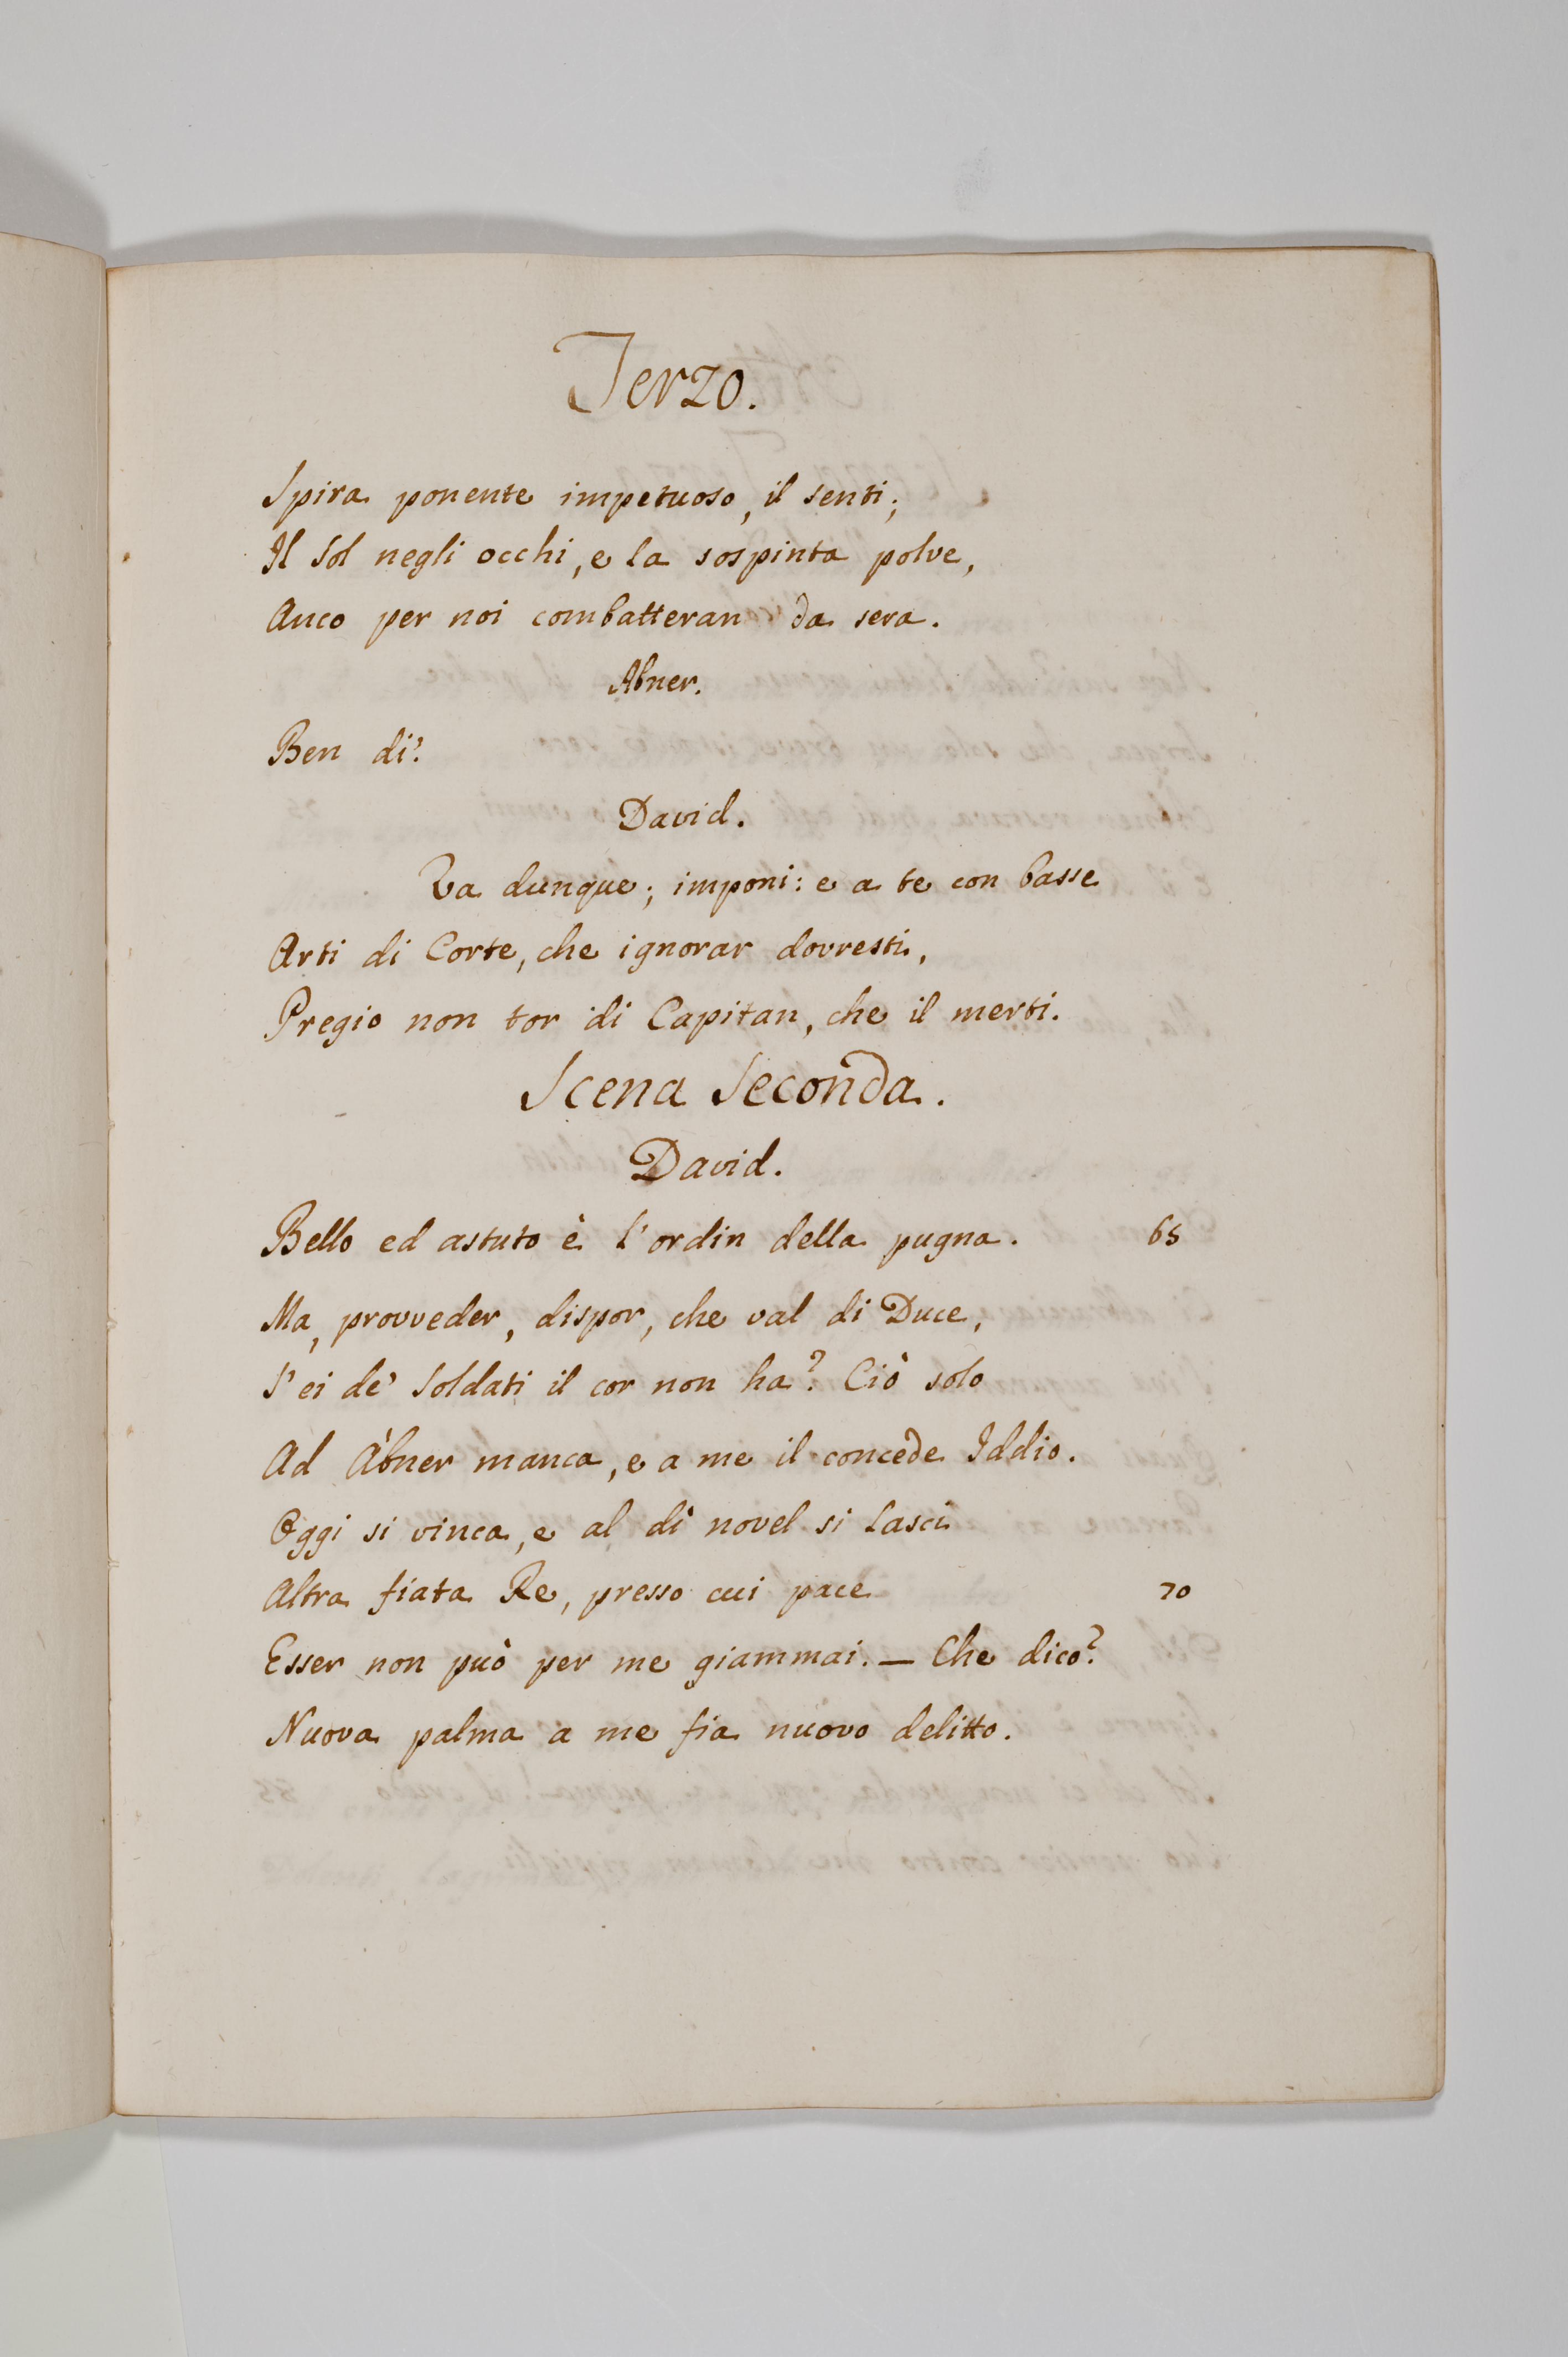 Terzo.
Spira ponente impetuoso, il senti;
Il Sol negli occhi, e la sospinta polve,
Anco per noi combatteran da sera.
Abner.
Ben di'.
David.
Va dunque; imponi: e a te con basse
Arti di Corte, che ignorar dovresti,
Pregio non tor di Capitan, che il merti.
Scena Seconda.
David.
Bello ed astuto è l'ordin della pugna. 65
Ma, provveder, dispor, che val di Duce,
S'ei de' Soldati il cor non ha? Ciò solo
Ad Àbner manca, e a me il concede Iddio.
Oggi si vinca, e al dì novel si lasci
Altra fiata Re, presso cui pace 70
Esser non può per me giammai. — Che dico?
Nuova palma a me fia nuovo delitto.